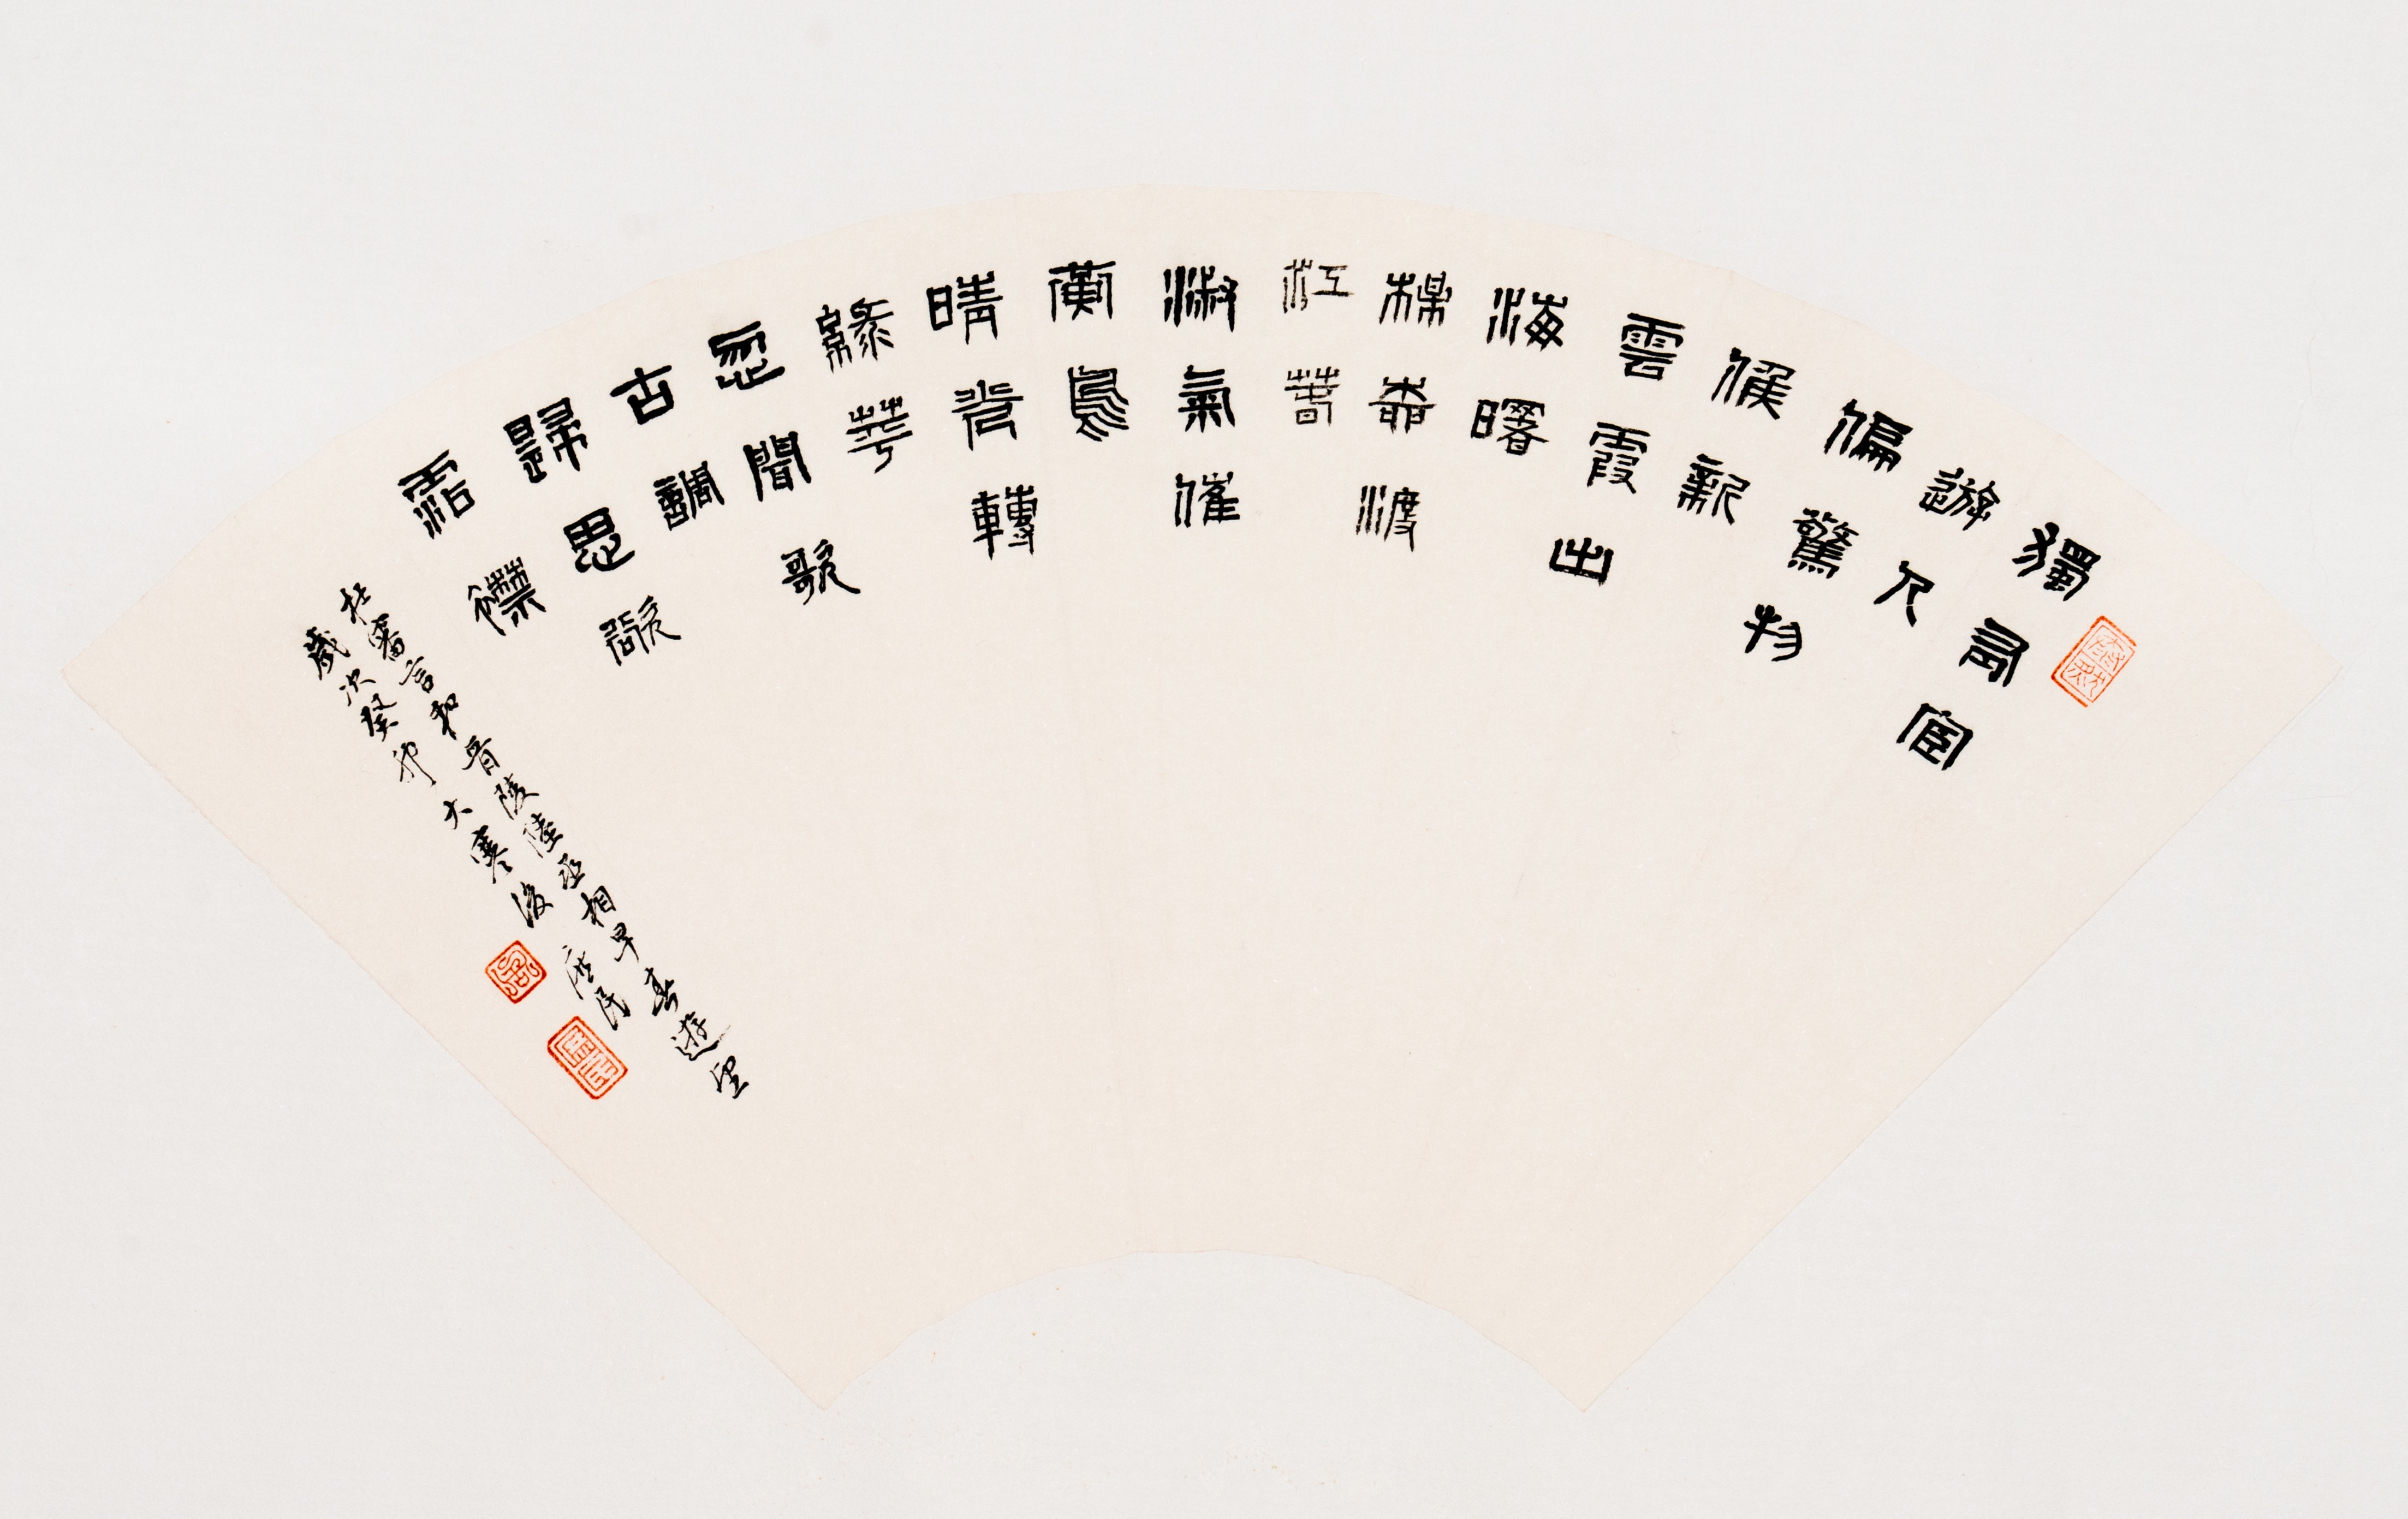 獨有宦
遊人
偏驚物
候新
雲霞出
海曙
楳桺渡
江萅
淑氣催
黃鳥
晴光轉
綠苹
忽聞歌
古調
歸思欲
霑襟
杜審言和晉陵陸丞相早春遊望
歲次癸卯大寒後